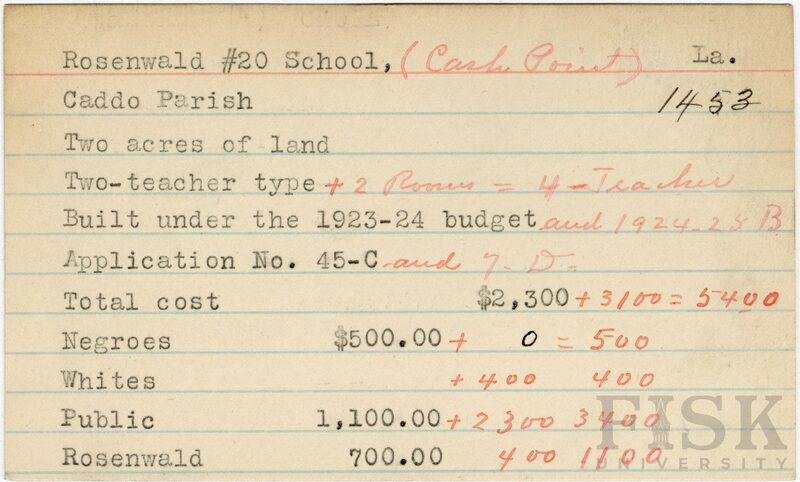 Rosenwald #20 School, (Cash Point) La.
Caddo Parish 1453
Two acres of land
Two-teacher type + 2 Rooms = 4-Teacher
Built under the 1923-24 budget and 1924-25 B
Application No. 45-C and 7-D
Total cost $2,300 + 3100 = 5400
Negroes $500.00 + 0 = 500
Whites + 400 400
Public 1,100.00 + 2300 3400
Rosenwald 700.00 400 1100
FISK
UNIVERSITY